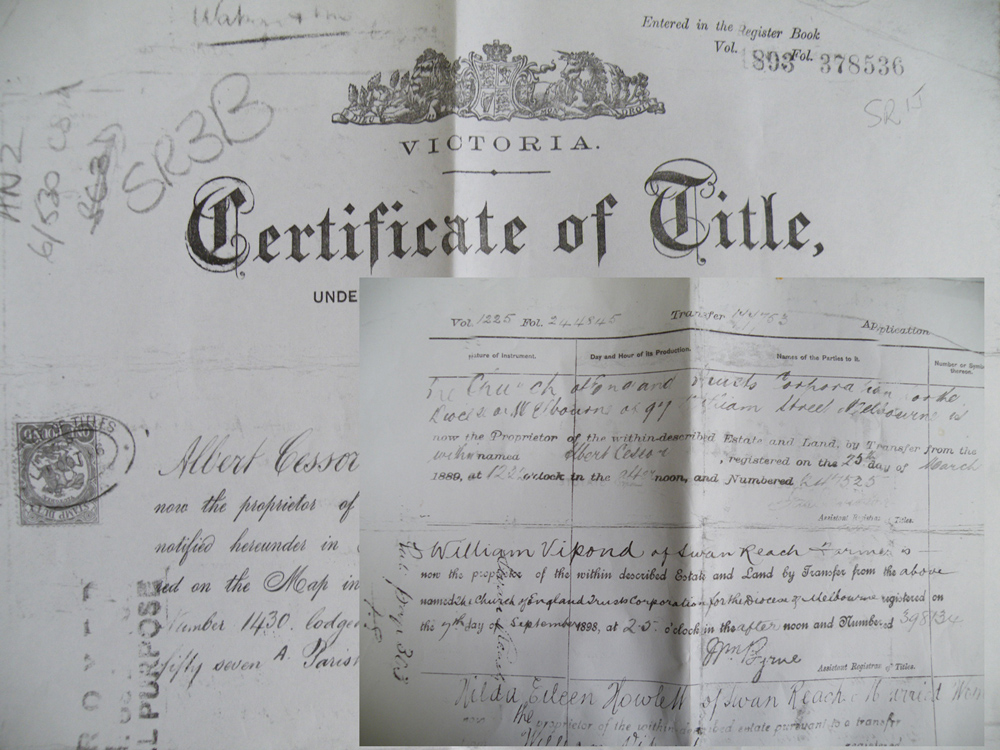 Entered in the Register Book
Vol. 1893 Fol. 378536
SR 15
SR3B
AN2
6/530
VICTORIA.
Certificate of Title,
UNDE
Albert Cessor
now the proprietor of
notified hereunder in
ed on the Map in
Number 1430. lodge
fifty seven A. Parish
STAMP DUTY
TITLES
L PURPOSE
Vol. 1225 Fol. 244845 Transfer Application
Nature of Instrument. Day and Hour of its Production. Names of the Parties to it. Number or Symbol thereon.
The Church of England Trusts Corporation for the
Diocese of Melbourne of 97 William Street Melbourne is
now the Proprietor of the within-described Estate and Land, by Transfer from the
within named Albert Cessor , registered on the 25th day of March
1889, at 12 o'clock in the noon, and Numbered
Assistant Registrar of Titles.
William Vipond of Swan Reach Farmer is
now the proprietor of the within described Estate and Land by Transfer from the above
named The Church of England Trusts Corporation for the Diocese of Melbourne registered on
the 7th day of September 1898, at 2.5. o'clock in the after noon and Numbered 398134
Wm Byrne
Assistant Registrar of Titles.
Hilda Eileen Howlett of Swan Reach Married Wom
now the proprietor of the within described estate pursuant to a transfer
William
registered